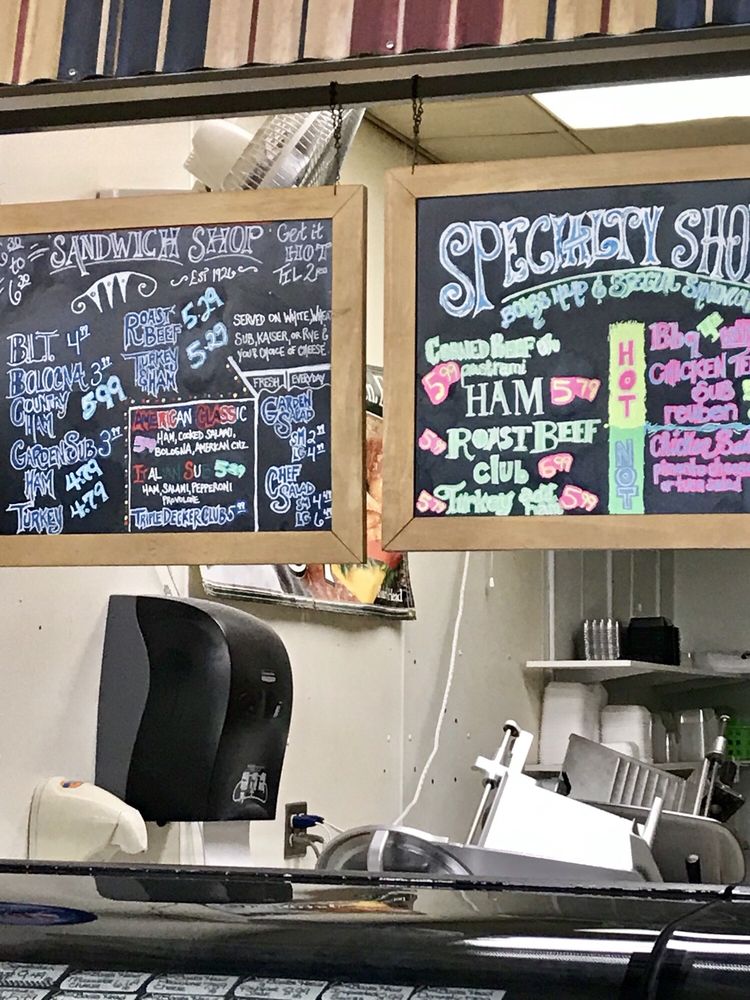 6:30
to
6:30
SANDWICH SHOP
EST 1926
Get it
HOT
TIL 2
B.L.T. 4.99
BOLOGNA 3.99
COUNTRY HAM 5.99
GARDEN SUB 3.99
HAM 4.79
TURKEY 4.79
ROAST BEEF 5.29
TURKEY & HAM 5.29
SERVED ON WHITE, WHEAT
SUB, KAISER, OR RYE &
YOUR CHOICE OF CHEESE
FRESH EVERYDAY
GARDEN SALAD
SM 2.99
LG 4.99
CHEF SALAD
SM 4.49
LG 6
AMERICAN CLASSIC
HAM, COOKED SALAMI,
BOLOGNA, AMERICAN CHZ
ITALIAN SUB 5.29
HAM, SALAMI, PEPPERONI
PROVOLONE
TRIPLE DECKER CLUB 5.99
SPECIALTY SHO
SPECIAL SANDWICH
CORNED BEEF OR
pastrami 5.99
HAM 5.79
ROAST BEEF
CLUB 6.99
Turkey 5.99
HOT
NOT
Bbq
CHICKEN TE
SUB
reuben
Chicken Salad